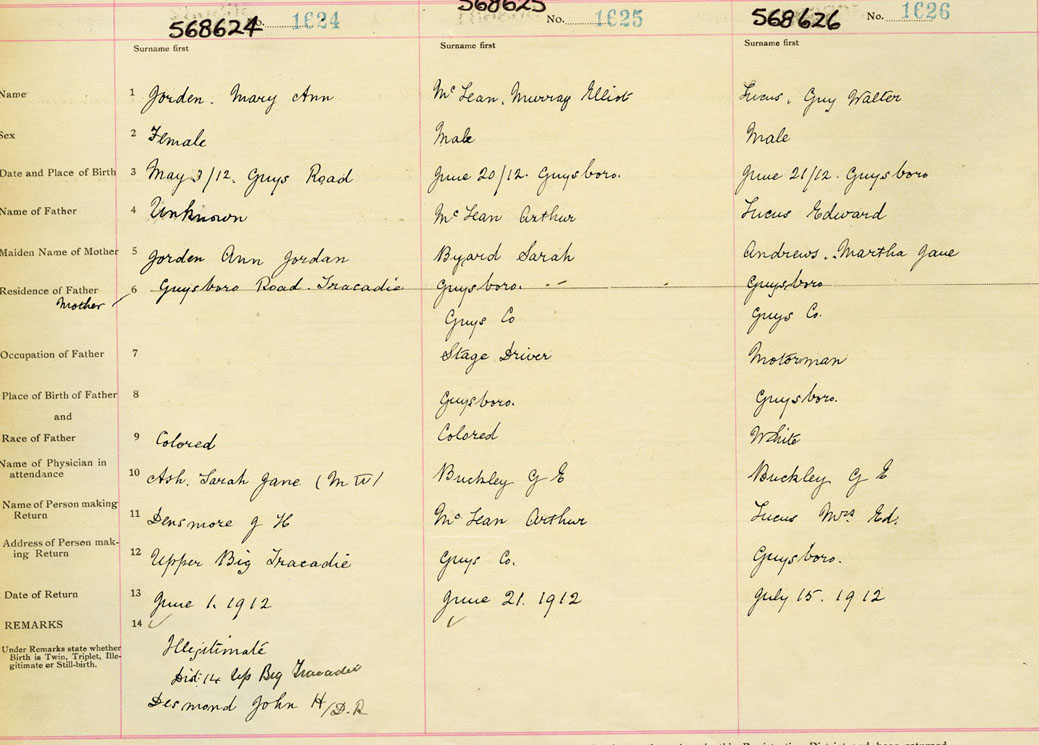 568624 No. 1624
568625 No. 1625
568626 No. 1626
Surname first
Surname first
Surname first
Name 1 Jorden. Mary Ann
Mc Lean, Murray Elliot
Lucus, Guy Walter
Sex 2 Female
Male
Male
Date and Place of Birth 3 May 3/12. Guys Road
June 20/12. Guysboro.
June 21/12. Guysboro
Name of Father 4 Unknown
Mc Lean Arthur
Lucus Edward
Maiden Name of Mother 5 Jorden Ann Jordan
Byard Sarah
Andrews. Martha Jane
Residence of Father 6 Guysboro Road. Tracadie
Mother
Guysboro.
Guys Co
Guysboro
Guys Co.
Occupation of Father 7
Stage Driver
Motorman
Place of Birth of Father 8
Guysboro.
Guysboro.
and
Race of Father 9 Colored
Colored
White
Name of Physician in
attendance 10 Ash. Sarah Jane (M W)
Buckley G E
Buckley G E
Name of Person making
Return 11 Densmore J H
Mc Lean Arthur
Lucus Mrs Ed.
Address of Person mak-
ing Return 12 Upper Big Tracadie
Guys Co.
Guysboro.
Date of Return 13 June 1. 1912
June 21. 1912
July 15. 1912
REMARKS 14
Under Remarks state whether
Birth is Twin, Triplet, Ille-
gitimate or Still-birth.
Illegitimate
Dist. 14 Up Big Tracadie
Desmond John H/D.R